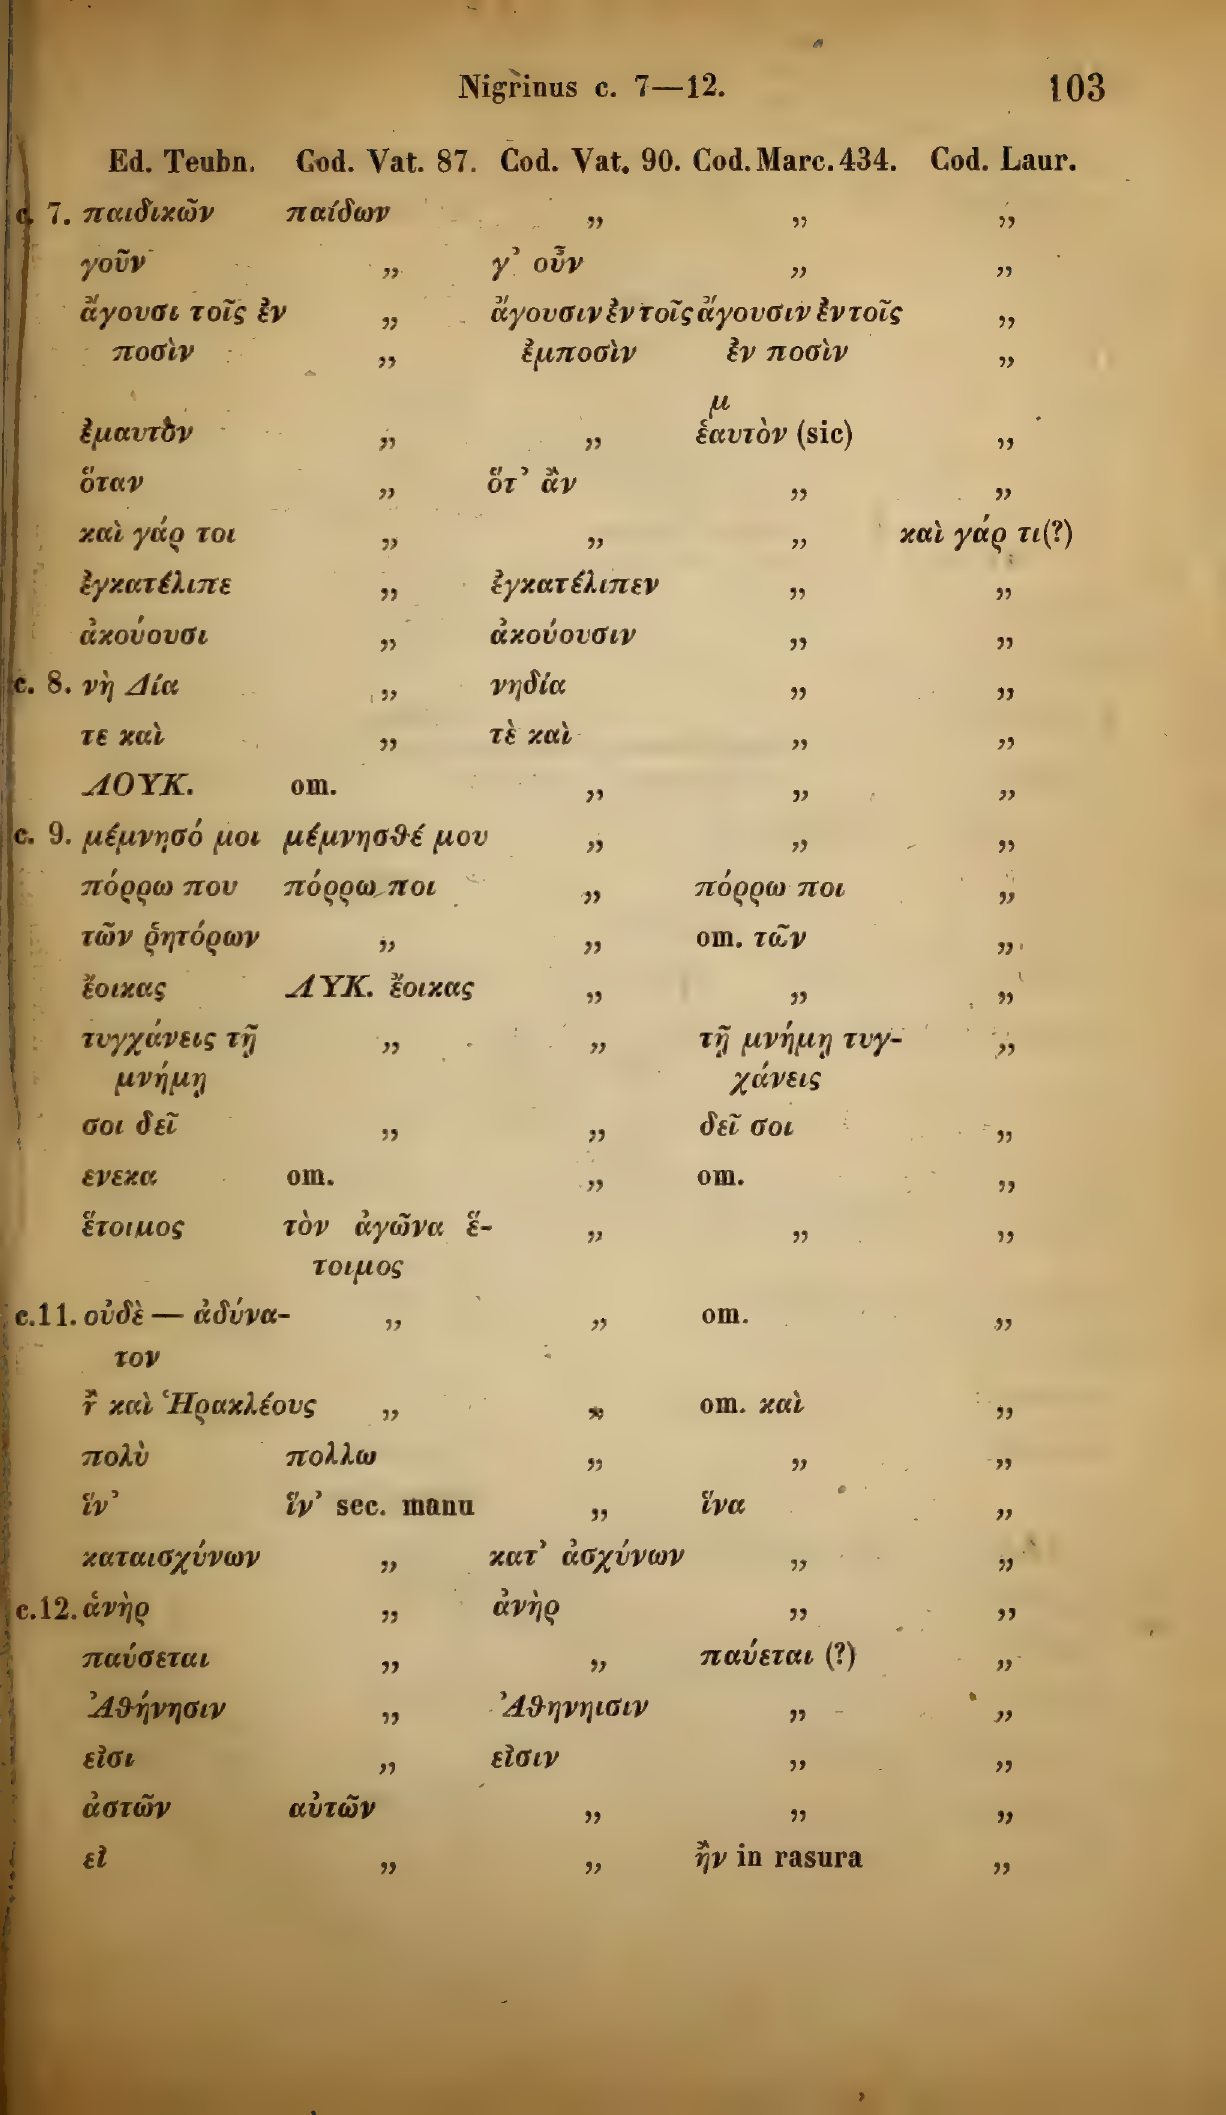 Nigrinus c. 7—12. 103
Ed. Teubn. Cod. Vat. 87. Cod. Vat. 90. Cod. Marc. 434. Cod. Laur.
c. 7. παιδικῶν παίδων „ „ „
γοῦν „ γ’ οὖν „ „
ἄγουσι τοῖς ἐν „ ἄγουσιν ἐν τοῖς ἄγουσιν ἐν τοῖς „
ποσὶν „ ἐμποσὶν ἐν ποσὶν „
μ
ἐμαυτὸν „ „ ἑαυτὸν (sic) „
ὅταν „ ὅτ’ ἂν „ „
καὶ γάρ τοι „ „ „ καὶ γάρ τι(?)
ἐγκατέλιπε „ ἐγκατέλιπεν „ „
ἀκούουσι „ ἀκούουσιν „ „
c. 8. νὴ Δία „ νηδία „ „
τε καὶ „ τὲ καὶ „ „
ΛΟΥΚ. om. „ „ „
c. 9. μέμνησό μοι μέμνησθέ μου „ „ „
πόρρω που πόρρω ποι „ πόρρω ποι „
τῶν ῥητόρων „ „ om. τῶν „
ἔοικας ΛΥΚ. ἔοικας „ „ „
τυγχάνεις τῇ „ „ τῇ μνήμῃ τυγ- „
μνήμῃ χάνεις
σοι δεῖ „ „ δεῖ σοι „
ενεκα om. „ om. „
ἕτοιμος τὸν ἀγῶνα ἕ- „ „ „
τοιμος
c.11. οὐδὲ — ἀδύνα- „ „ om. „
τον
ἢ καὶ Ἡρακλέους „ „ om. καὶ „
πολὺ πολλω „ „ „
ἵν’ ἵν’ sec. manu „ ἵνα „
καταισχύνων „ κατ’ ἀσχύνων „ „
c.12. ἁνὴρ „ ἀνὴρ „ „
παύσεται „ „ παύεται (?) „
Ἀθήνησιν „ Ἀθηνηισιν „ „
εἰσι „ εἰσιν „ „
ἀστῶν αὐτῶν „ „ „
εἰ „ „ ἢν in rasura „